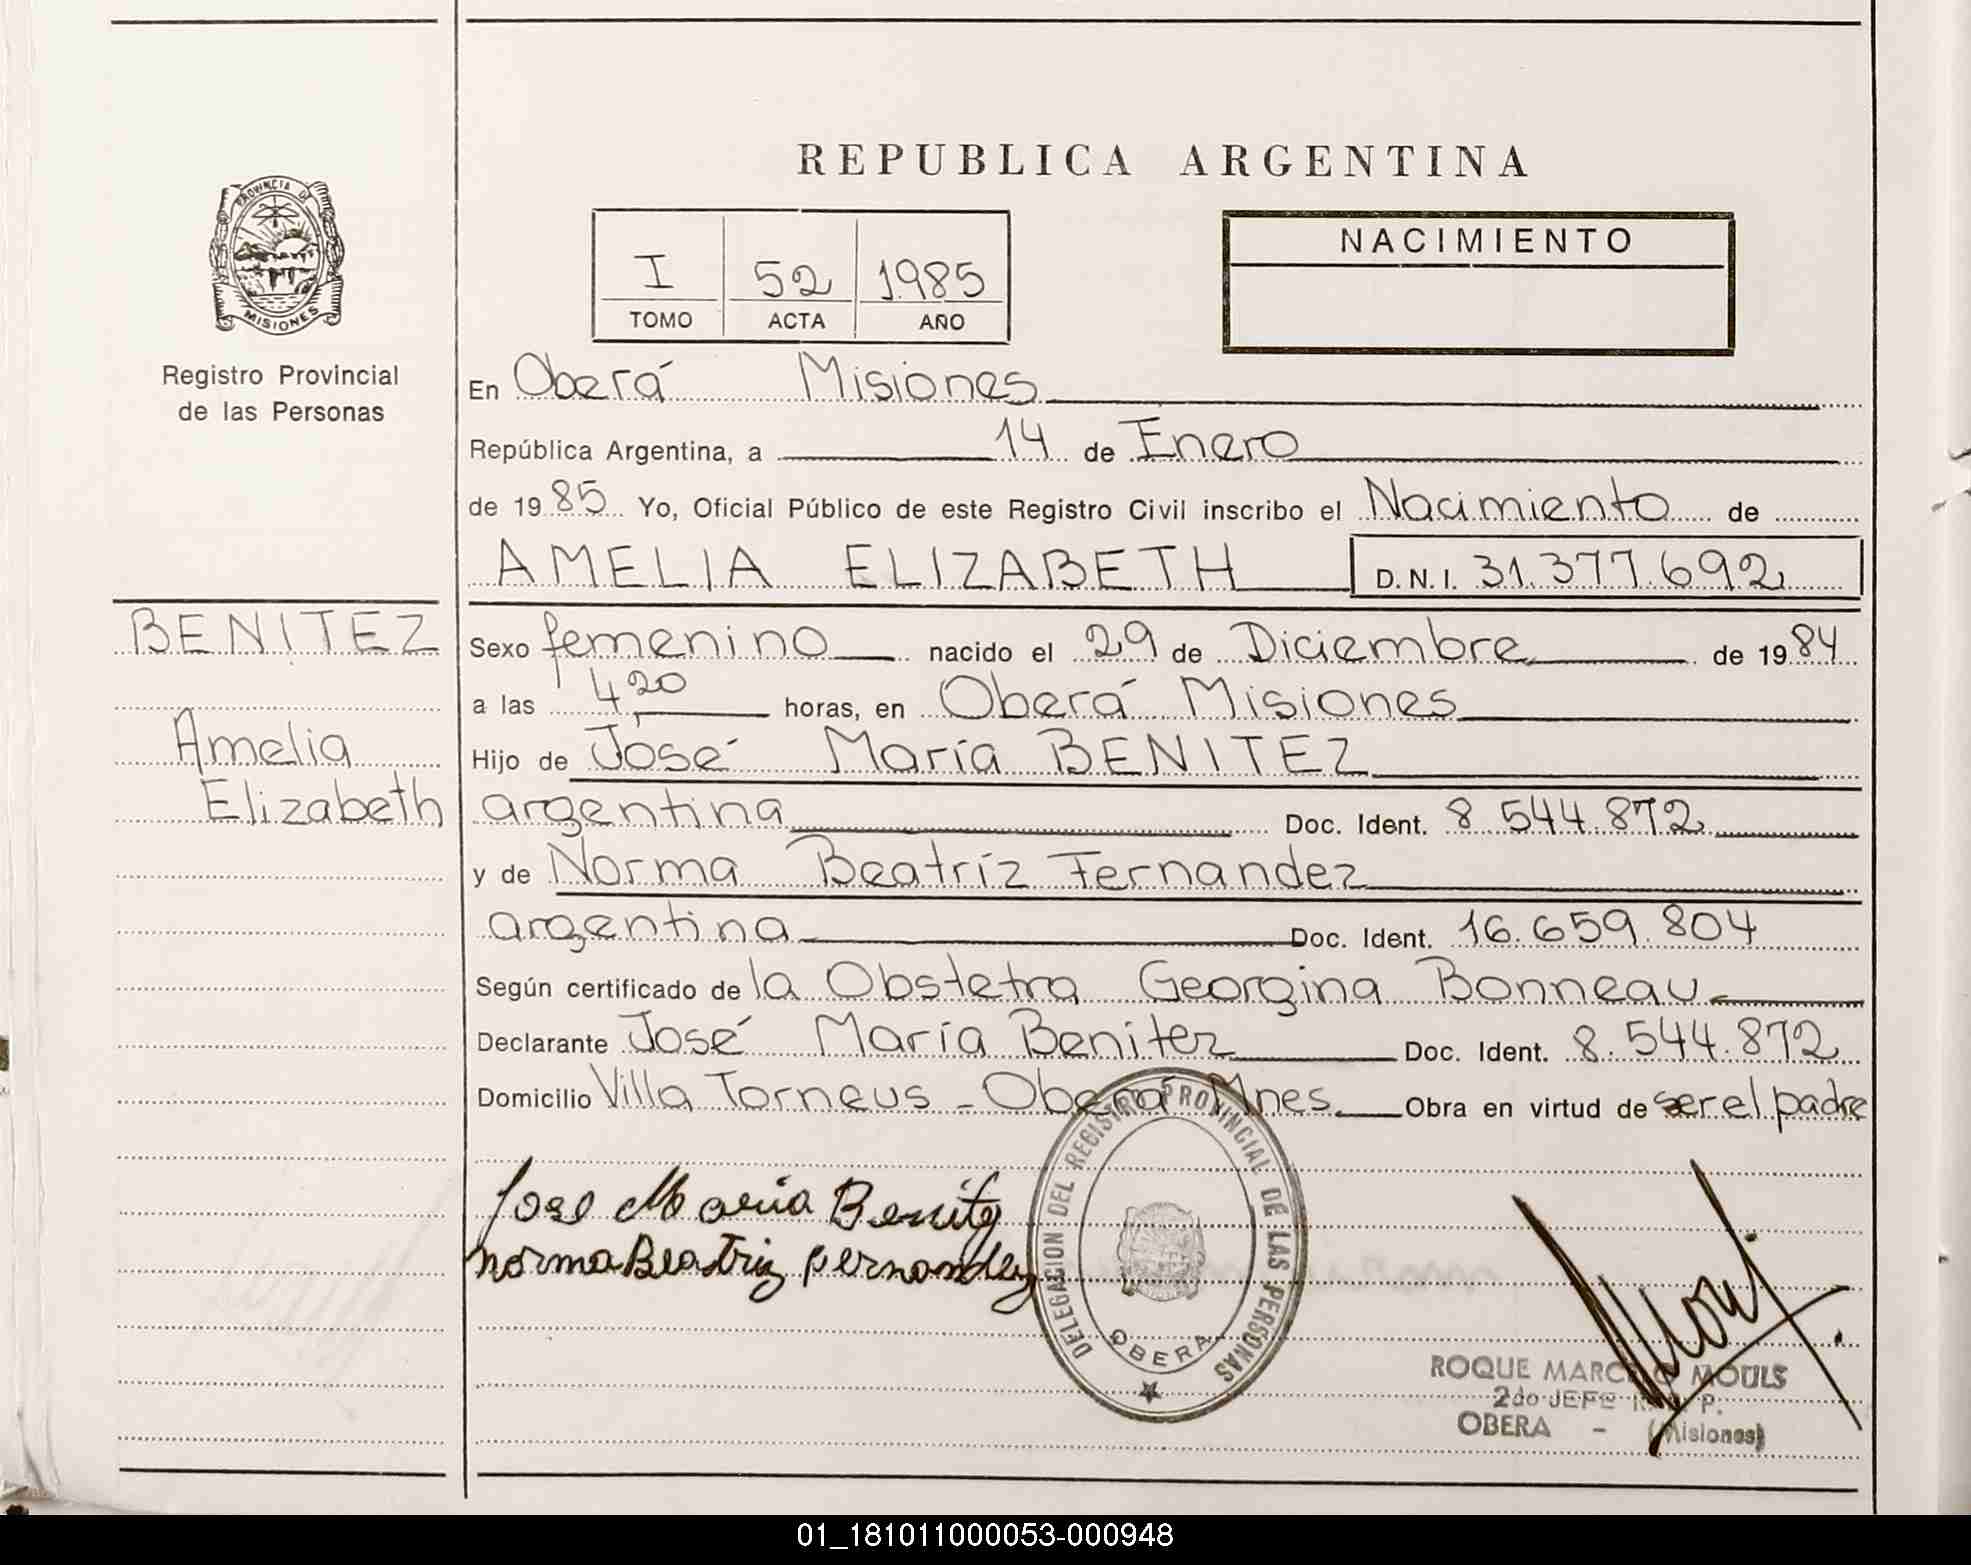 REPUBLICA ARGENTINA
PROVINCIA DE
MISIONES
Registro Provincial
de las Personas
I 52 1985
TOMO ACTA AÑO
NACIMIENTO
En Oberá Misiones
República Argentina, a 14 de Enero
de 1985 Yo, Oficial Público de este Registro Civil inscribo el Nacimiento de
AMELIA ELIZABETH D.N.I. 31.377.692
BENITEZ
Amelia
Elizabeth
Sexo femenino nacido el 29 de Diciembre de 1984
a las 4,20 horas, en Oberá Misiones
Hijo de José María BENITEZ
argentina Doc. Ident. 8.544.872
y de Norma Beatríz Fernandez
argentina Doc. Ident. 16.659.804
Según certificado de la Obstetra Georgina Bonneau
Declarante José María Benitez Doc. Ident. 8.544.872
Domicilio Villa Torneus - Oberá Mnes. Obra en virtud de ser el padre
Jose Maria Benitez
norma Beatriz fernandez
DELEGACION DEL REGISTRO PROVINCIAL DE LAS PERSONAS
OBERA
ROQUE MARCELO MOULS
2do JEFE P.
OBERA - (Misiones)
01_181011000053-000948